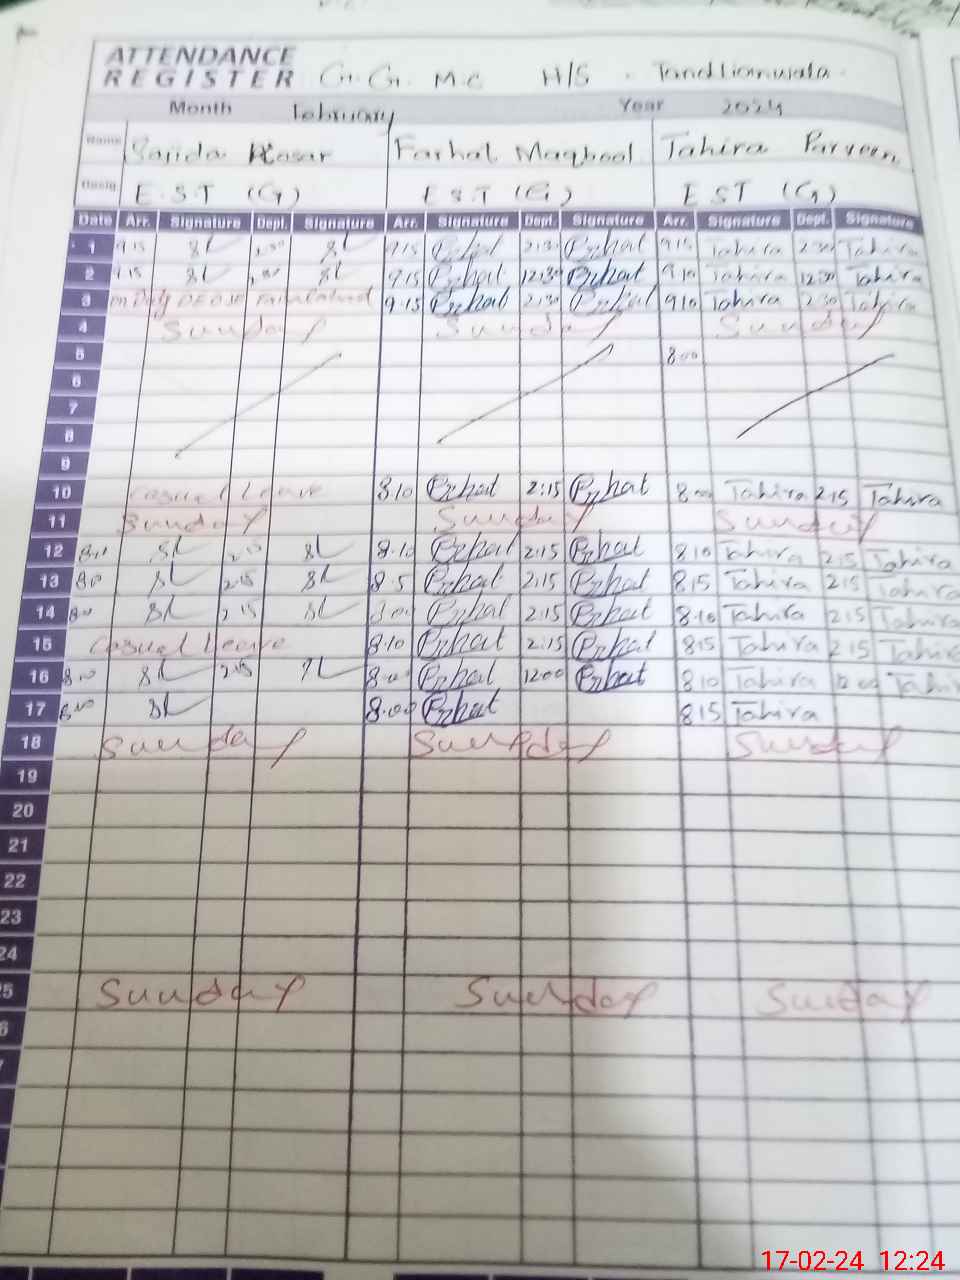 ATTENDANCE
REGISTER G.G. M.C H/S . Tandlianwala.
Month February Year 2024
Name Sajida Kosar Farhat Maqbool Tahira Parveen
Desig. E.S.T (G) EST (G) EST (G)
Date Arr. Signature Dept. Signature Arr. Signature Dept. Signature Arr. Signature Dept. Signature
1 9.15 SK 2.30 SK 9.15 Farhat 2:30 Farhat 9.15 Tahira 2.30 Tahira
2 9.15 SK SK 9.15 Farhat 12.30 Farhat 9.10 Tahira 12.30 Tahira
3 on Duty 9.15 Farhat 2.30 Farhat 9.10 Tahira 2.30 Tahira
4 Sunday Sunday Sunday
5 8.00
6
7
8
9
10 Casual Leave 8.10 Farhat 2:15 Farhat 8.00 Tahira 2.15 Tahira
11 Sunday Sunday Sunday
12 SK 2.15 SK 8.10 Farhat 2:15 Farhat 8.10 Tahira 2.15 Tahira
13 SK 2.15 SK 8.5 Farhat 2:15 Farhat 8.15 Tahira 2.15 Tahira
14 SK 2.15 SK 8.00 Farhat 2:15 Farhat 8.10 Tahira 2.15 Tahira
15 Casual Leave 8.10 Farhat 2:15 Farhat 8.15 Tahira 2.15 Tahira
16 8.00 SK 2.15 SK 8.00 Farhat 12.00 Farhat 8.10 Tahira 12.00 Tahira
17 8.00 SK 8.00 Farhat 8.15 Tahira
18 Sunday Sunday Sunday
19
20
21
22
23
24
25 Sunday Sunday Sunday
17-02-24 12:24